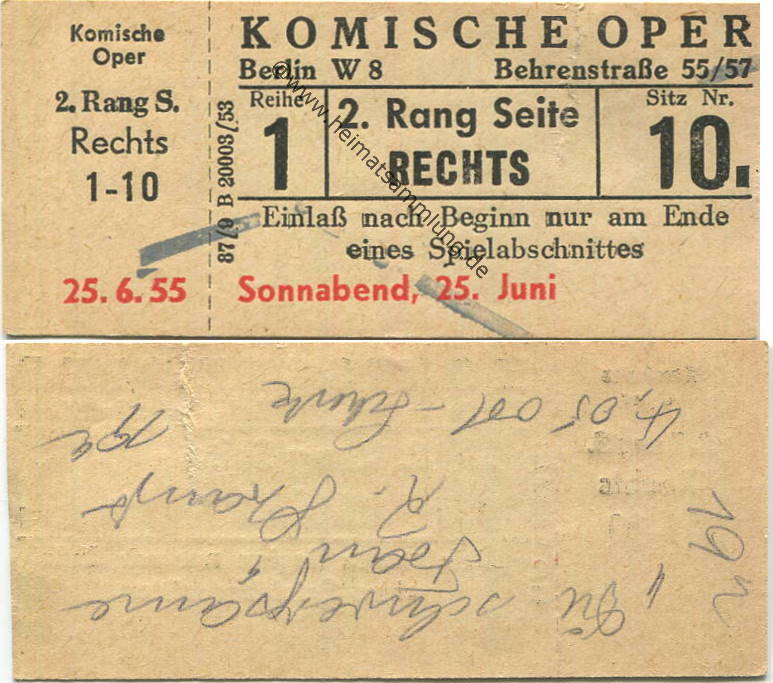 Komische
Oper
2. Rang S.
Rechts
1-10
25.6.55
87/9 B 20003/53
KOMISCHE OPER
Berlin W 8 Behrenstraße 55/57
Reihe
1
2. Rang Seite
RECHTS
Sitz Nr.
10.
Einlaß nach Beginn nur am Ende
eines Spielabschnittes
Sonnabend, 25. Juni
© www.heimatsammlung.de
"Die schweigsame
Frau"
R. Strauß
4,05 Ost-
19h